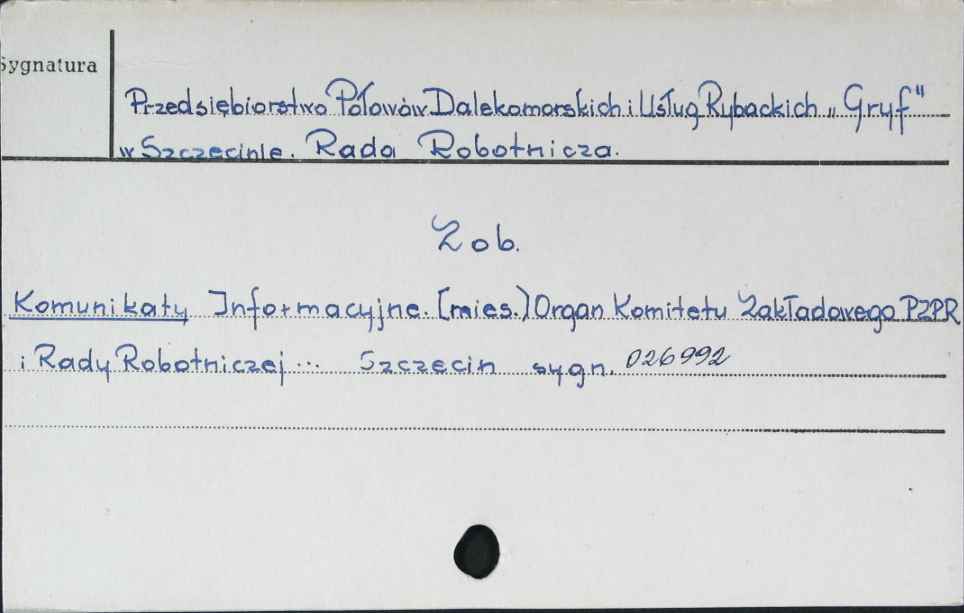 Sygnatura
Przedsiębiorstwo Połowów Dalekomorskich i Usług Rybackich „Gryf"
w Szczecinie. Rada Robotnicza.
Zob.
Komunikaty Informacyjne. [mies.] Organ Komitetu Zakładowego PZPR
i Rady Robotniczej ... Szczecin sygn. 026992